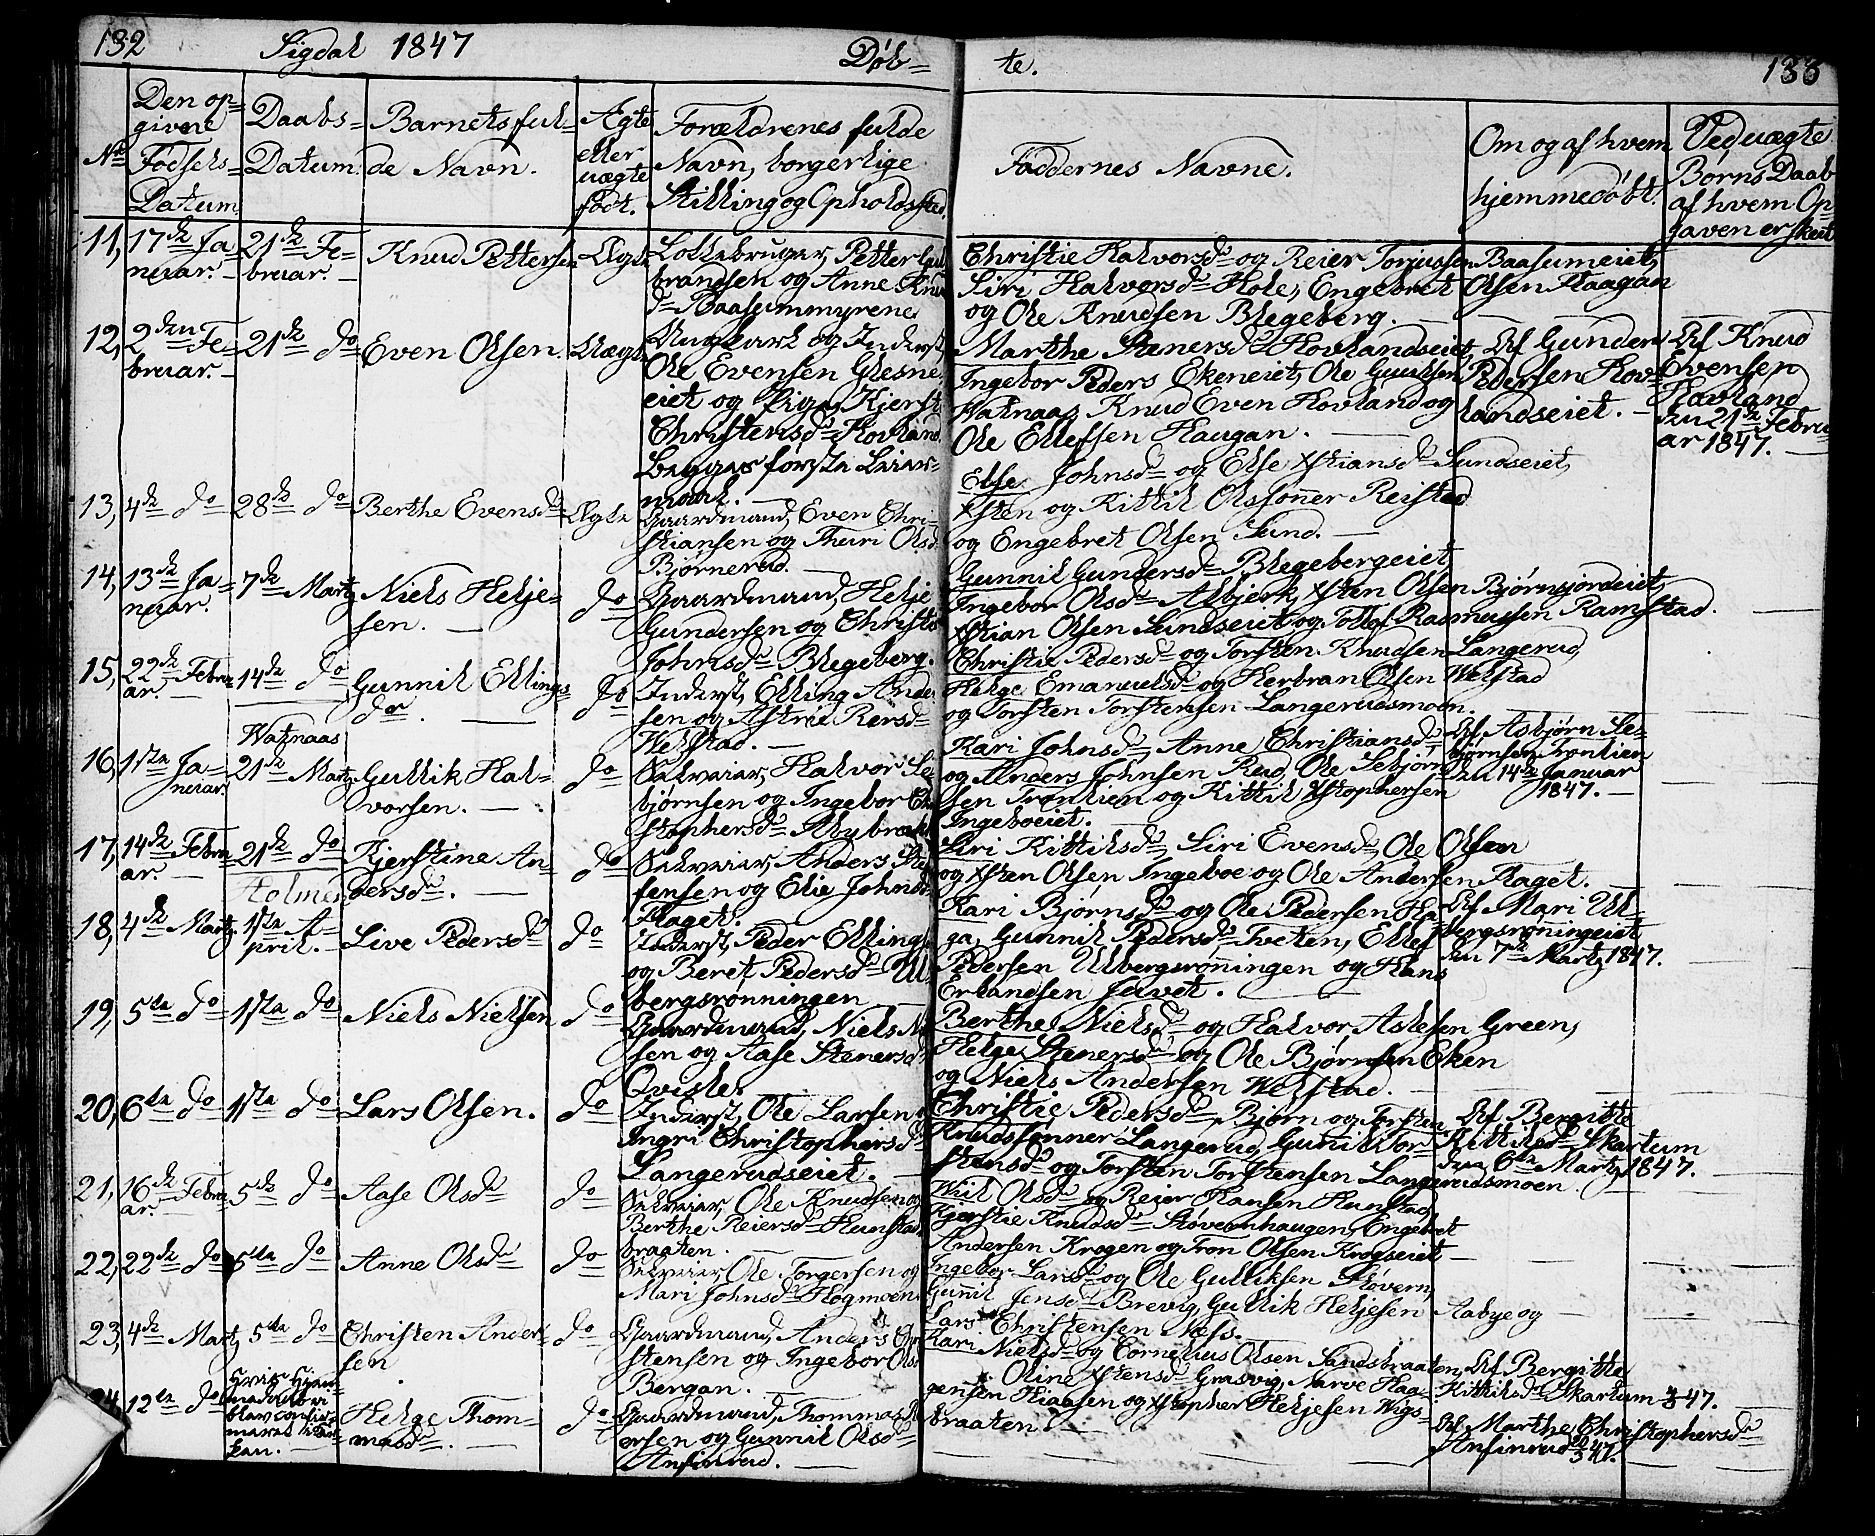 132 Sigdal 1847 Døb=
te. 133
Den op=
givne
Fødsels=
Datum
No
Daabs=
Datum
Barnets ful=
de Navn.
Ægte
eller
uægte
født.
Forældrenes fulde
Navn, borgerlige
Stilling og Opholdssted.
Faddernes Navne.
Om og af hvem
hjemmedøbt.
Ved uægte
Børns Daab
af hvem Op=
gaven er skeet
11, 17de Ja
nuar.
21de Fe=
bruar.
Knud Pettersen
Ægte
Lottebruger, Petter Gul
brandsen og Anne Knu
dsd Baasummyrene
Christie Halvorsd og Reier Torjussen Baasumeiet,
Siri Halvorsd Hole, Engebret Olsen Haagan
og Ole Knudsen Blegeberg.
12, 2den Fe=
bruar.
21de do
Even Olsen.
Uægte
Ungkarl og Inderst
Ole Evensen Glesne
eiet og Pige Kjersti
Christensd Hovland.
Begges første Leier=
maal.
Marthe Stenersd Hovlandseiet,
Ingebor Peders Ekeneiet, Ole Gulliksen
Watnaas, Knud Even Hovland og
Ole Ellefsen Haugan.
Af Gunder
Pedersen Hov=
landseiet.
Af Knud
Evensen
Hovland
den 21de Febru
ar 1847.
13, 4de do
28de do
Berthe Evensd
Ægte
Gaardmand, Even Chri=
stiansen og Thuri Olsd
Bjørnerud.
Else Johnsd og Else Xstiansd Sundseiet,
Xsten og Kittil Olssønner Reistad
og Engebret Olsen Sund.
14, 13de Ja=
nuar.
7de Marts
Niels Helje=
sen.
do
Gaardmand, Helje
Gundersen og Christi
Johnsd Blegeberg.
Gunnil Gundersd Blegebergeiet
Ingebor Olsd Albjerk, Xsten Olsen Bjørnsjordeiet,
Xstian Olsen Sundseiet og Tollof Rasmussen Ramstad.
15, 22de Febru
ar.
14de do
Gunnil Ellings
dr.
do
Inderst, Elling Ander
sen og Astrie Rersd
Welstad.
Christie Pedersd og Torsten Knudsen Langerud,
Helge Emanuelsd og Herbran Olsen Welstad
og Torsten Torstensen Langerudsmoen.
Watnaas
16, 1ste Ja=
nuar.
21de Marts
Gullik Hal=
vorsen.
do
Selveier, Halvor Se
bjørnsen og Ingebor Chri
stophersd Aabybraat
Kari Johnsd, Anne Christiansd
og Anders Johnsen Rud, Ole Sebjørn
sen Trønlien og Kittil Xstophersen
Ingeboeiet.
Af Asbjørn Se=
bjørnsen Trønlien
den 14de Januar
1847.
17, 14de Febru
ar.
21de do
Holmen
Kjerstine An=
dersd.
do
Selveier, Anders Ste
fensen og Elie Johnsd
Haget.
Siri Kittilsd, Siri Evensd, Ole Olsen
og Xsten Olsen Ingeboe og Ole Andersen Haget.
18, 4de Marts
1ste A=
pril.
Live Pedersd
do
Inderst, Peder Ellings
og Beret Pedersd Ul
bergsrønningen
Kari Bjørnsd og Ole Pedersen Ha=
ga, Gunnil Pedersd Tveten, Ellef
Pedersen Ulbergsrønningen og Hans
Erlandsen Juvet.
Af Mari Ul=
bergsrøningeiet
den 7de Marts 1847.
19, 5te do
1ste do
Niels Nielsen
do
Gaardmand, Niels Ni
sen og Aase Stenersd
Qvisle.
Berthe Nielsd og Halvor Aslesen Green,
Helge Stenersd og Ole Bjørnsen Eken
og Niels Andersen Welstad.
20, 6te do
1ste do
Lars Olsen.
do
Inderst, Ole Larsen og
Ingri Christophersd
Langerudseiet.
Christie Pedersd, Bjørn og Torsten
Knudssønner Langerud, Gunil Tor=
stensd og Torsten Torstensen Langerudsmoen
Af Bergitte
Kittilsd Skartum
den 6te Marts 1847.
21, 16de Febru
ar.
5te do
Aase Olsd
do
Selveier, Ole Knudsen og
Berthe Reiersd Hunstad
braaten.
Olsd og Reier Hansen Hunstad,
Kjerstie Knudsd Støvernhaugen, Engebret
Andersen Krogen og Tron Olsen Krogseiet
22, 22de do
5te do
Anne Olsd
do
Selveier, Ole Torgersen og
Mari Johnsd Hogmoen
Ingebor Larsd og Ole Gulliksen Støvern,
Gunil Jensd Brevig, Gullik Heljesen Aabye og
Lars Christensen Næss.
23, 4de Marts
5te do
Christen Ander
sen
do
Gaardmand, Anders Chri
stensen og Ingebor Olsd
Bergan.
Kari Nielsd og Cornelius Olsen Sandsbraaten,
Oline Xstensd Grasvig, Narve Haa=
gensen Hiaasen og Xstopher Heljesen Wigs=
braaten.
Af Bergitte
Kittilsd Skartum 47.
24, 12te do
Helge Thom=
masd.
do
Gaardmand, Thommas
ersen og Gunnil Olsd
Anfinrud.
Af Marthe Christophersd
Anfinrud 47.